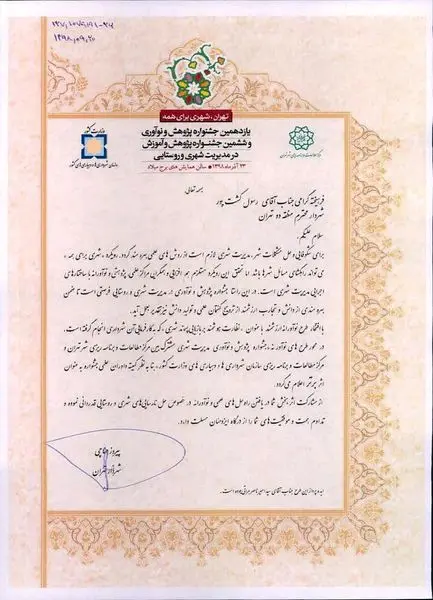 ۱۳۹۸،۰۹،۲۰
تهران، شهری برای همه
یازدهمین جشنواره پژوهش و نوآوری
و ششمین جشنواره پژوهش و آموزش
در مدیریت شهری و روستایی
۲۳ آذر ماه ۱۳۹۸ • سالن همایش های برج میلاد
وزارت کشور
سازمان شهرداری ها و دهیاری های کشور
بسمه تعالی
فرهیخته گرامی جناب آقای رسول کشت پور
شهردار محترم منطقه دو تهران
سلام علیکم؛
برای شکوفایی و حل مشکلات شهر، مدیریت شهری لازم است از روش های علمی بهره مند گردد. رویکرد، شهری برای همه،
می تواند راهگشای مسائل شهرها باشد اما تحقق این رویکرد مستلزم هم افزایی و همفکری مراکز علمی، پژوهشی و نوآورانه با ساختارهای
اجرایی مدیریت شهری است. در این راستا جشنواره پژوهش و نوآوری در مدیریت شهری و روستایی فرصتی است تا ضمن
بهره مندی از دانش و تجارب ارزشمند از ترویج گفتمان علمی و تولید دانش نیز تقدیر بعمل آید.
با افتخار طرح نوآورانه ارزشمند با عنوان، نظارت هوشمند بر بازیابی پسماند شهری، که به کارفرمایی آن شهرداری انجام گرفته است،
در محور طرح های نوآورانه، جشنواره پژوهش و نوآوری مدیریت شهری مشترک بین مرکز مطالعات و برنامه ریزی شهر تهران و
مرکز مطالعات و برنامه ریزی سازمان شهرداری ها و دهیاری های وزارت کشور، بنا به نظر کمیته داوران علمی جشنواره به عنوان
اثر برتر اعلام می گردد.
از مشارکت اثر بخش شما در یافتن راه حل های علمی و نوآورانه در خصوص حل نارسایی های شهری و روستایی قدردانی نموده و
تداوم همت و موفقیت های شما را از درگاه ایزد منان مسئلت دارد.
پیروز حناچی
شهردار تهران
ایده پرداز این طرح جناب آقای سید امیر ناصر هراتی بوده است.